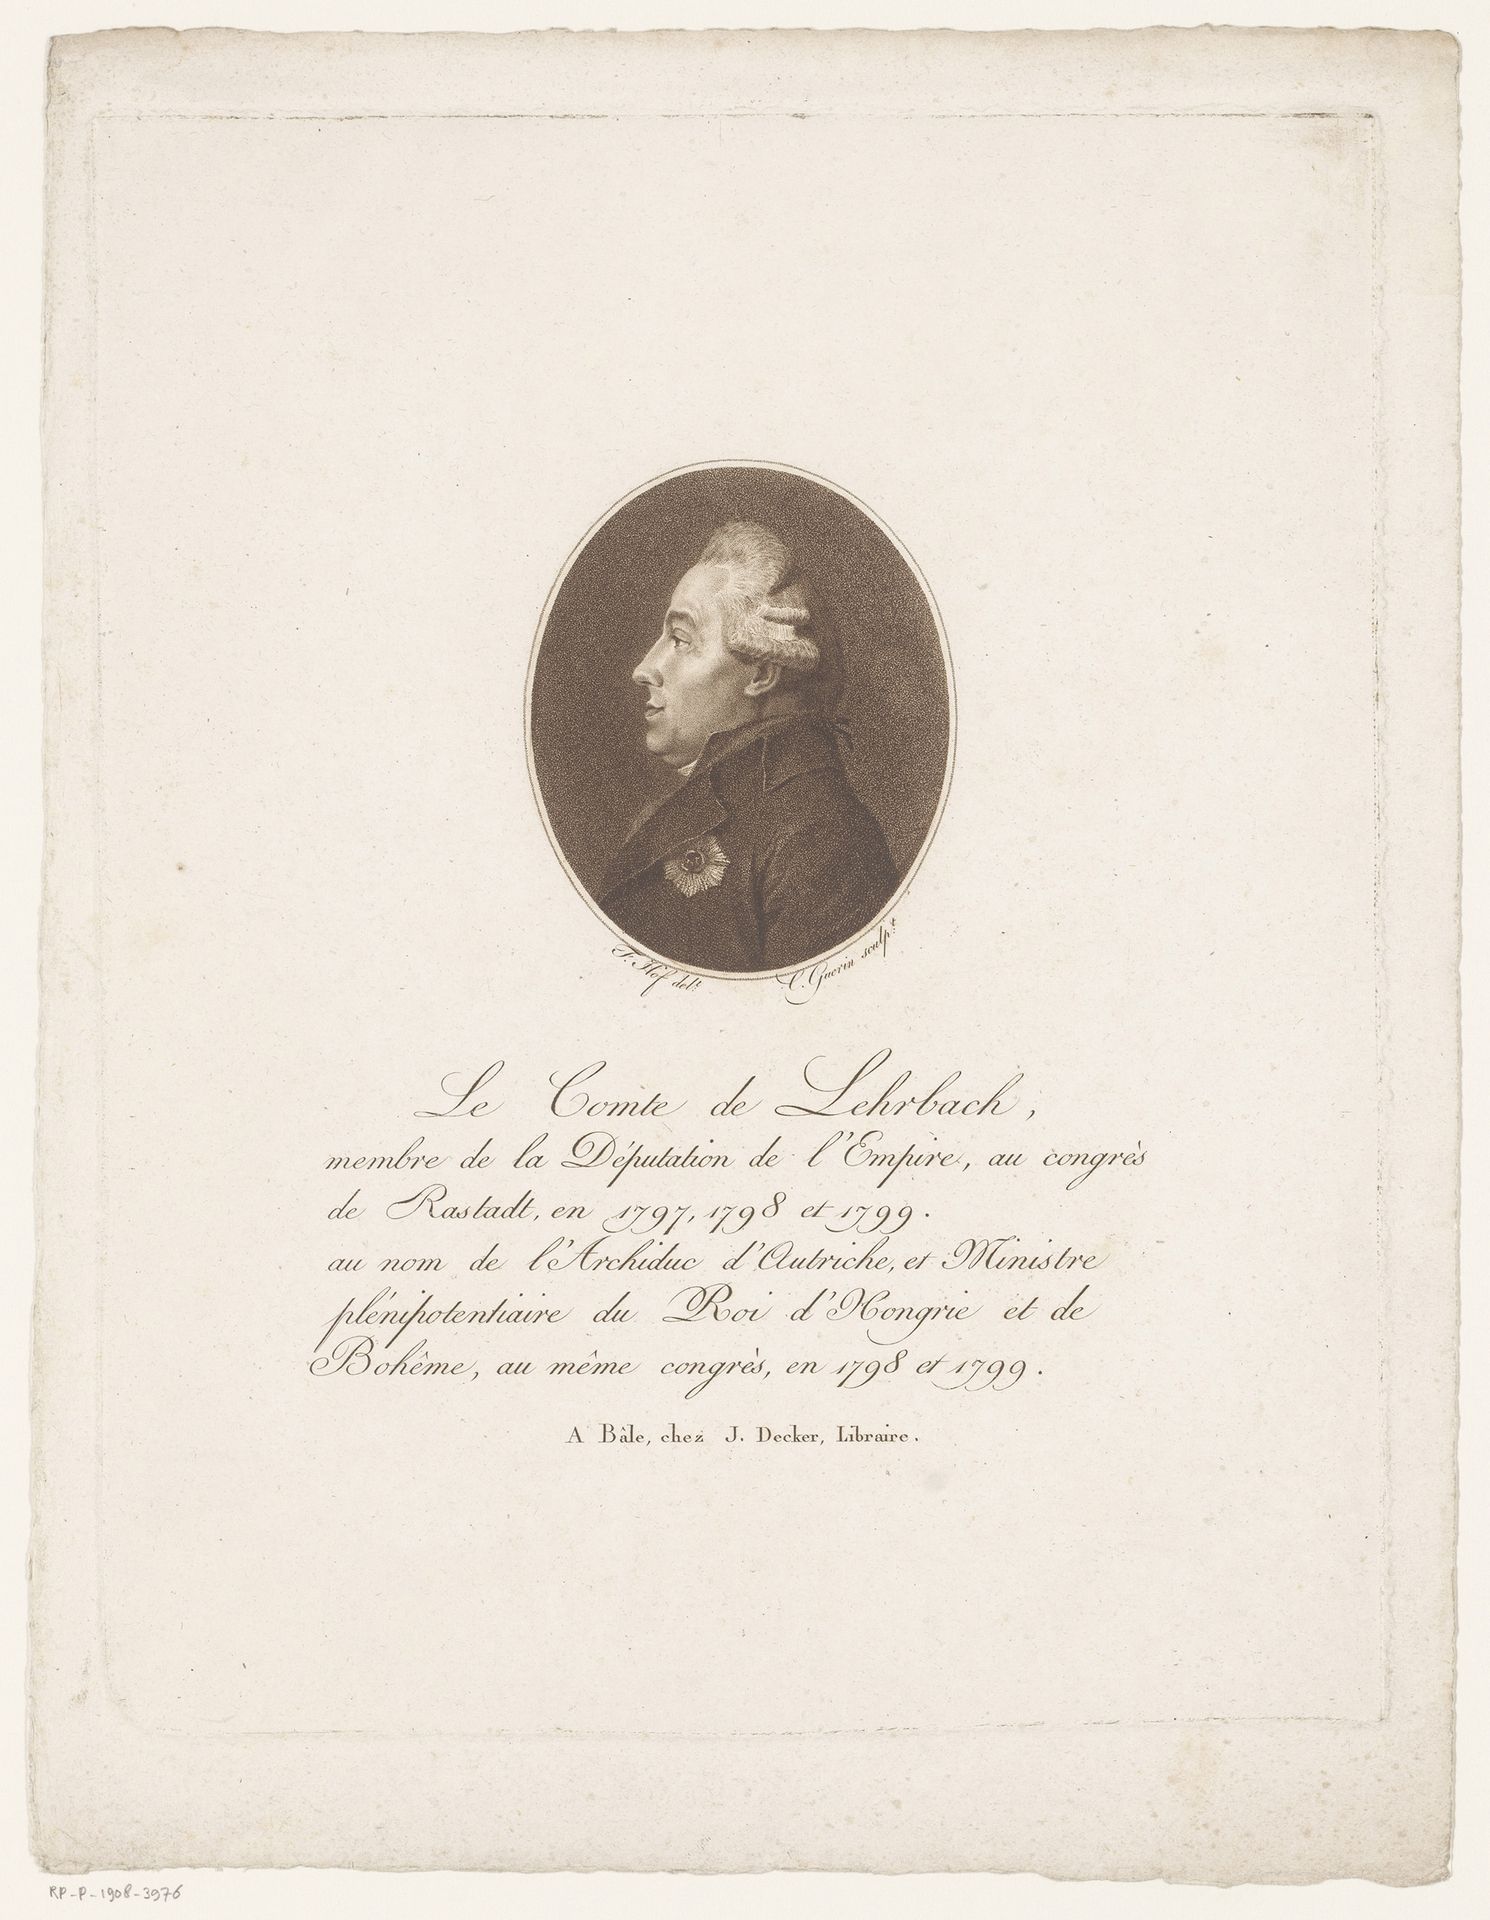 F. Hof del.t
C. Guerin sculp.t
Le Comte de Lehrbach,
membre de la Députation de l'Empire, au congrès
de Rastadt, en 1797, 1798 et 1799.
au nom de l'Archiduc d'Autriche, et Ministre
plénipotentiaire du Roi d'Hongrie et de
Bohême, au même congrès, en 1798 et 1799.
A Bâle, chez J. Decker, Libraire.
RP-P-1908-3976